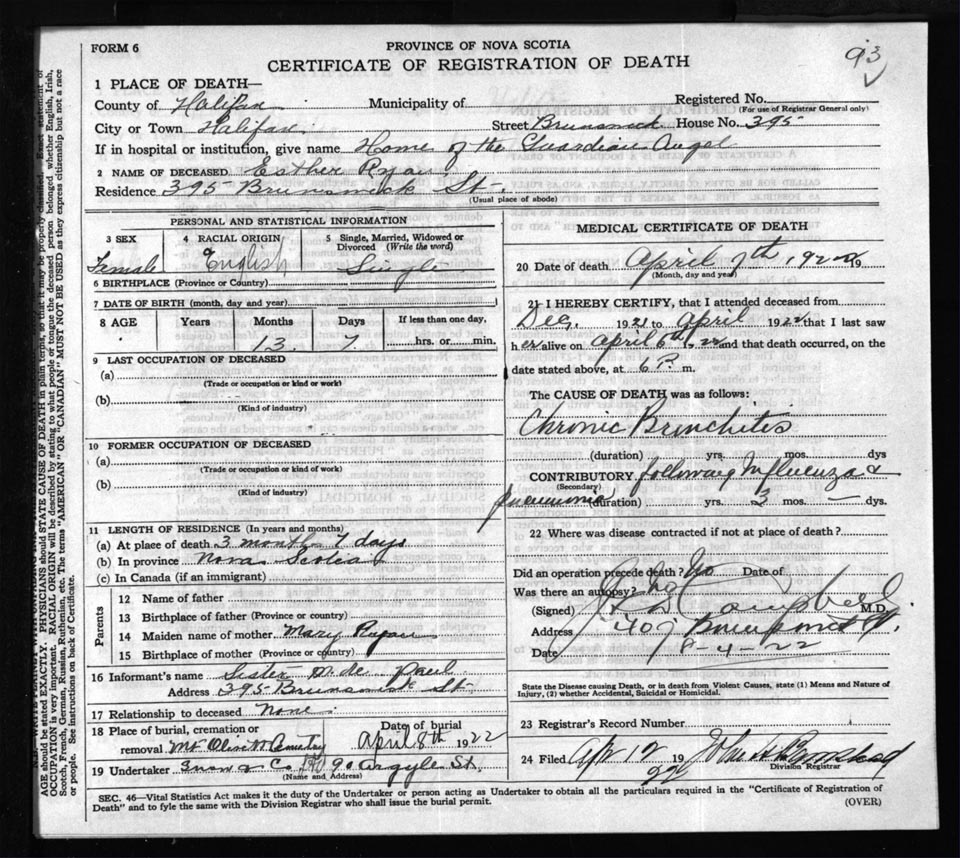 FORM 6
PROVINCE OF NOVA SCOTIA
CERTIFICATE OF REGISTRATION OF DEATH
93
1 PLACE OF DEATH—
County of Halifax Municipality of Registered No.
(For use of Registrar General only)
City or Town Halifax Street Brunswick House No. 395
If in hospital or institution, give name Home of the Guardian Angel
2 NAME OF DECEASED Esther Ryan
Residence 395 Brunswick St.
(Usual place of abode)
PERSONAL AND STATISTICAL INFORMATION
3 SEX 4 RACIAL ORIGIN 5 Single, Married, Widowed or Divorced (Write the word)
Female English Single
6 BIRTHPLACE (Province or Country)
7 DATE OF BIRTH (month, day and year)
8 AGE Years Months Days If less than one day,
13 7 hrs. or min.
9 LAST OCCUPATION OF DECEASED
(a)
(Trade or occupation or kind of work)
(b)
(Kind of industry)
10 FORMER OCCUPATION OF DECEASED
(a)
(Trade or occupation or kind of work)
(b)
(Kind of industry)
11 LENGTH OF RESIDENCE (In years and months)
(a) At place of death 3 months 7 days
(b) In province Nova Scotia
(c) In Canada (if an immigrant)
Parents
12 Name of father
13 Birthplace of father (Province or country)
14 Maiden name of mother Mary Ryan
15 Birthplace of mother (Province or country)
16 Informant's name Sister M. de Paul
Address 395 Brunswick St.
17 Relationship to deceased None
18 Place of burial, cremation or removal Mt Olivett Cemetery
Date of burial April 8th 1922
19 Undertaker Snow & Co 90 Argyle St.
(Name and Address)
MEDICAL CERTIFICATE OF DEATH
20 Date of death April 7th, 1922 19
(Month, day and year)
21 I HEREBY CERTIFY, that I attended deceased from
Dec, 1921 to April 1922 that I last saw
her alive on April 6th, 22 and that death occurred, on the
date stated above, at 6 P. m.
The CAUSE OF DEATH was as follows:
Chronic Brinchites
(duration) yrs. mos. dys
CONTRIBUTORY following Influenza &
(Secondary)
pneumonia (duration) yrs. 3 mos. — dys.
22 Where was disease contracted if not at place of death?
Did an operation precede death? No Date of
Was there an autopsy? No
(Signed) Campbell M.D.
Address 407 St.
Date 8-4-22
State the Disease causing Death, or in death from Violent Causes, state (1) Means and Nature of
Injury, (2) whether Accidental, Suicidal or Homicidal.
23 Registrar's Record Number
24 Filed Apr 12 1922
Division Registrar
SEC. 46—Vital Statistics Act makes it the duty of the Undertaker or person acting as Undertaker to obtain all the particulars required in the "Certificate of Registration of
Death" and to fyle the same with the Division Registrar who shall issue the burial permit.
(OVER)
AGE should be stated EXACTLY. PHYSICIANS should STATE CAUSE OF DEATH in plain terms, so that it may be properly classified. Exact statement of
OCCUPATION is very important. RACIAL ORIGIN will be described by stating to what people or tongue the deceased person belonged, whether English, Irish,
Scotch, French, German, Russian, Ruthenian, etc. The terms "AMERICAN" OR "CANADIAN" MUST NOT BE USED as they express citizenship but not a race
or people. See instructions on back of Certificate.